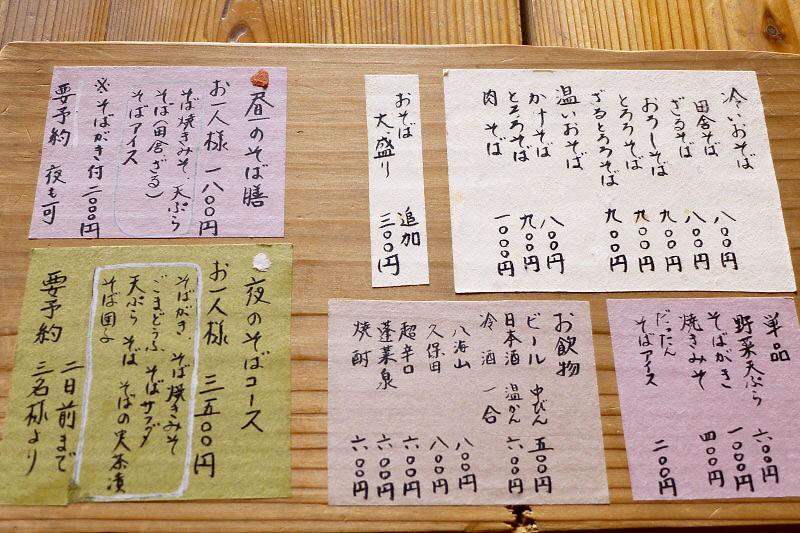 冷いおそば
田舎そば 八〇〇円
ざるそば 八〇〇円
おろしそば 九〇〇円
とろろそば 九〇〇円
ざるとろろそば 九〇〇円
温いおそば
かけそば 八〇〇円
とろろそば 九〇〇円
肉そば 一〇〇〇円
おそば 追加
大盛り 三〇〇円
昼のそば膳
お一人様 一八〇〇円
そば焼きみそ、天ぷら
そば(田舎、ざる)
そばアイス
※そばがき付 二〇〇〇円
要予約 夜も可
単品
野菜天ぷら 六〇〇円
そばがき 一〇〇〇円
焼きみそ 四〇〇円
だったん
そばアイス 二〇〇円
お飲物
ビール 中びん 五〇〇円
日本酒 温かん 六〇〇円
冷酒 一合
八海山 八〇〇円
久保田 八〇〇円
超辛口 六〇〇円
蓬莱泉 六〇〇円
焼酎 六〇〇円
夜のそばコース
お一人様 三五〇〇円
そばがき、そば焼きみそ
ごまどうふ そばサラダ
天ぷら そば そばの実茶漬
そば団子
要予約 二日前まで
三名様より